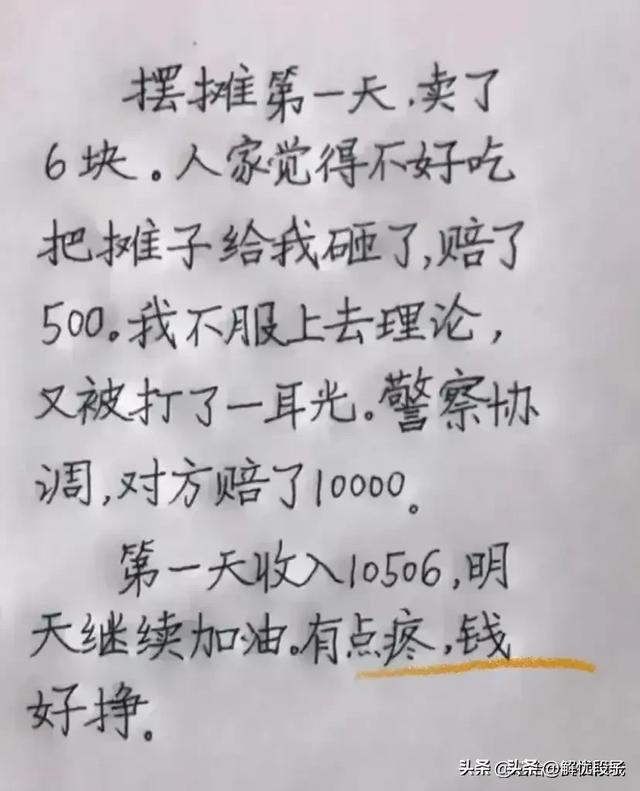 摆摊第一天，卖了
6块。人家觉得不好吃
把摊子给我砸了，赔了
500。我不服上去理论，
又被打了一耳光。警察协
调，对方赔了10000。
第一天收入10506，明
天继续加油。有点疼，钱
好挣。